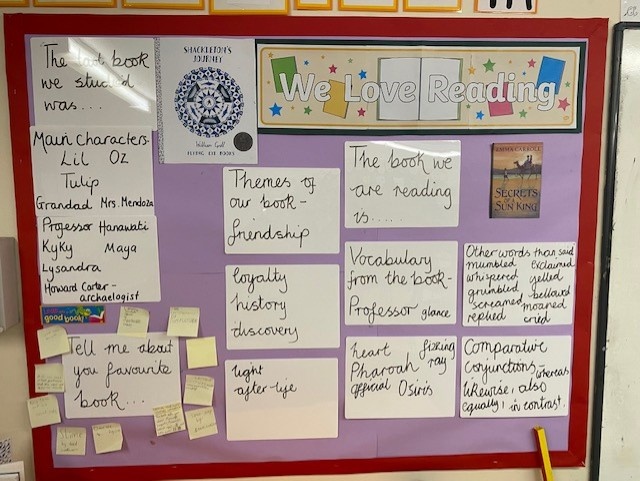 The last book
we studied
was....
SHACKLETON'S
JOURNEY
William Grill
FLYING EYE BOOKS
We Love Reading
Main Characters-
Lil Oz
Tulip
Grandad Mrs. Mendoza
Professor Hanawati
KyKy Maya
Lysandra
Howard Carter-
archaelogist
Themes of
our book-
friendship
loyalty
history
discovery
light
after-life
The book we
are reading
is.....
EMMA CARROLL
SECRETS
OF A
SUN KING
Vocabulary
from the book-
Professor glance
heart fizzing
Pharoah ray
official Osiris
Other words than said
mumbled exclaimed
whispered yelled
grumbled bellowed
screamed moaned
replied cried
Comparative
Conjunctions, whereas
likewise, also
equally, in contrast.
good book!
Tell me about
you favourite
book...